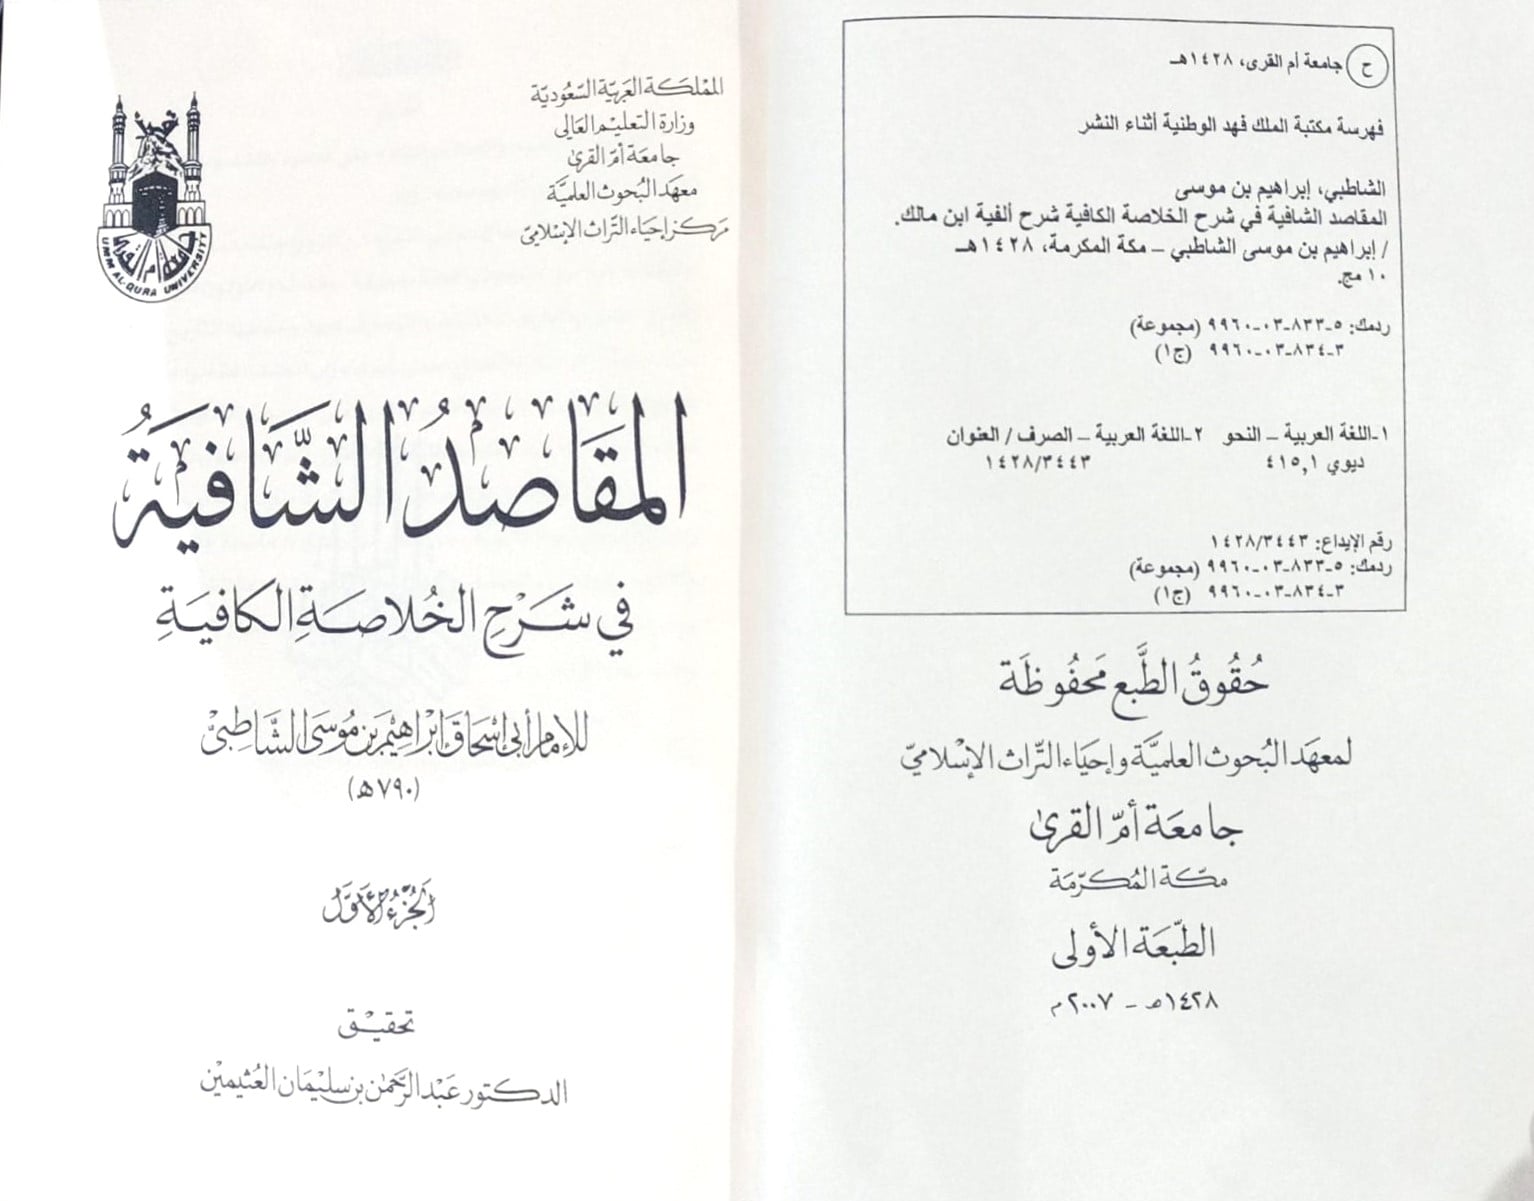 ح جامعة أم القرى، ١٤٢٨هـ
فهرسة مكتبة الملك فهد الوطنية أثناء النشر
الشاطبي، إبراهيم بن موسى
المقاصد الشافية في شرح الخلاصة الكافية شرح ألفية ابن مالك.
/ إبراهيم بن موسى الشاطبي – مكة المكرمة، ١٤٢٨هـ
١٠ مج.
ردمك: ٥-٨٣٣-٠٣-٩٩٦٠ (مجموعة)
٣-٨٣٤-٠٣-٩٩٦٠ (ج١)
١-اللغة العربية – النحو ٢-اللغة العربية – الصرف / العنوان
ديوي ٤١٥,١ ١٤٢٨/٣٤٤٣
رقم الإيداع: ١٤٢٨/٣٤٤٣
ردمك: ٥-٨٣٣-٠٣-٩٩٦٠ (مجموعة)
٣-٨٣٤-٠٣-٩٩٦٠ (ج١)
حُقُوقُ الطَّبع مَحفُوظَة
لمعهَد البُحوث العلميَّة وإحيَاء التّراث الإسْلاميّ
جامعَة أمّ القرىٰ
مكّة المُكرّمَة
الطّبعَة الأولى
١٤٢٨هـ – ٢٠٠٧م
المَمْلكَة العَربيّة السّعُوديّة
وزارة التعليم العَالي
جامعَة أمّ القرىٰ
معهَد البُحوث العلميَّة
مَركز إحيَاء التّراث الإسْلاميّ
جامعة أم القرى
UMM AL-QURA UNIVERSITY
المَقَاصِدُ الشَّافيَةُ
في شَرْحِ الخُلاصَةِ الكافيَةِ
للإمام أبي إسْحَاق إبْرَاهِيْم بن مُوسَى الشَّاطِبيّ
(٧٩٠هـ)
الجُزءُ الأوَّل
تحقيْق
الدكتور عَبْد الرَّحمٰن بن سليْمَان العُثيمِيْن